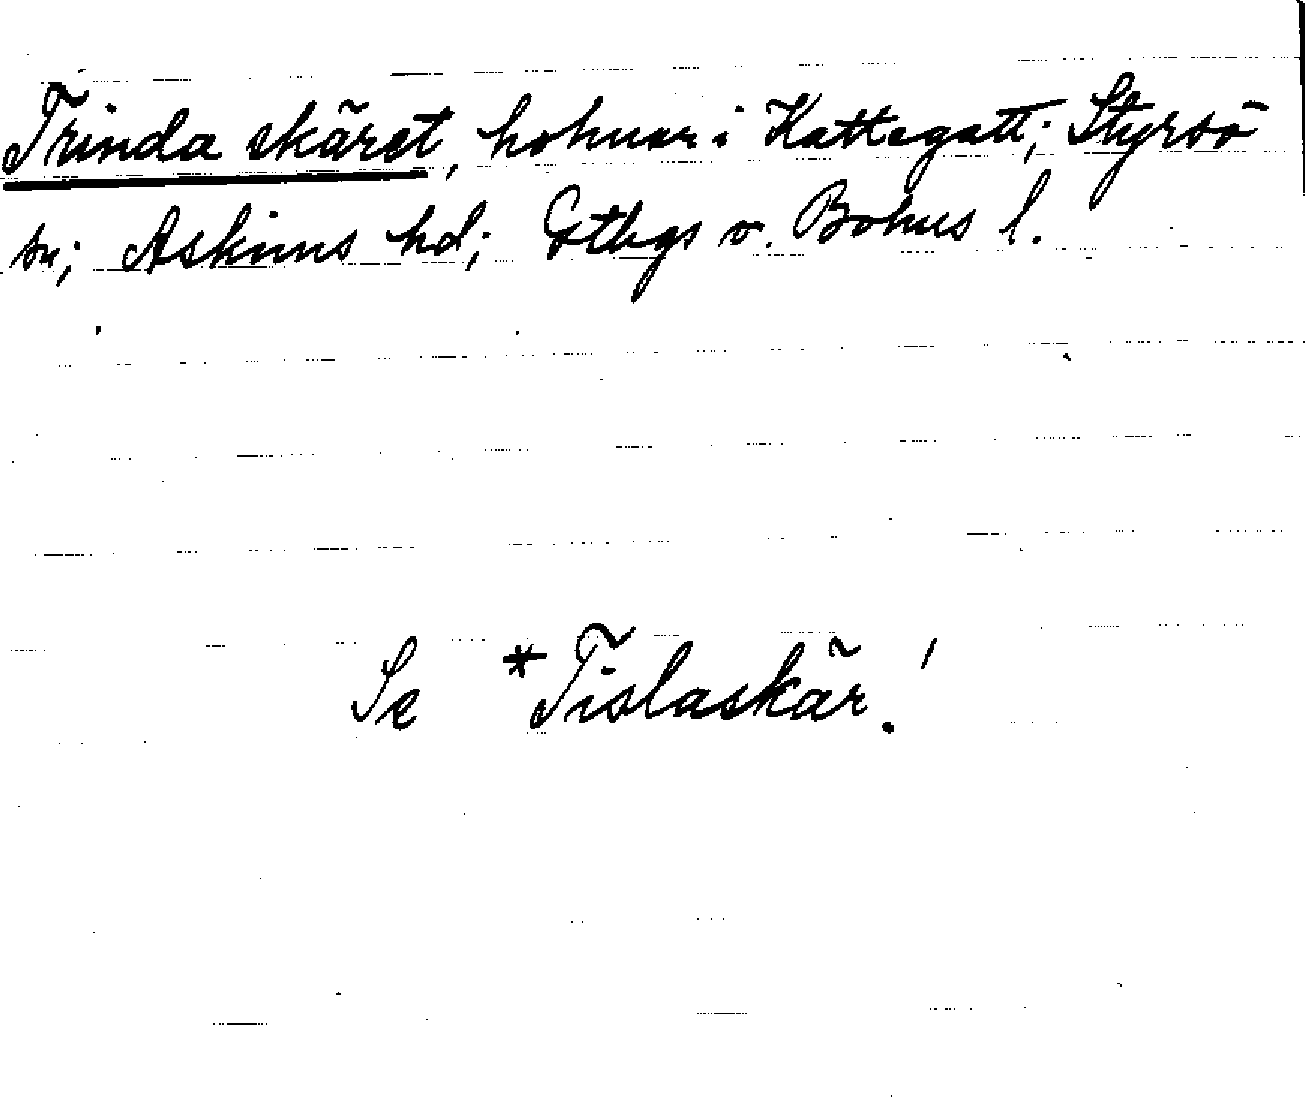 Trinda skäret, holmar i Kattegatt; Styrsö
sn; Askims hd; Gtbgs o. Bohus l.
Se *Tislaskär.!